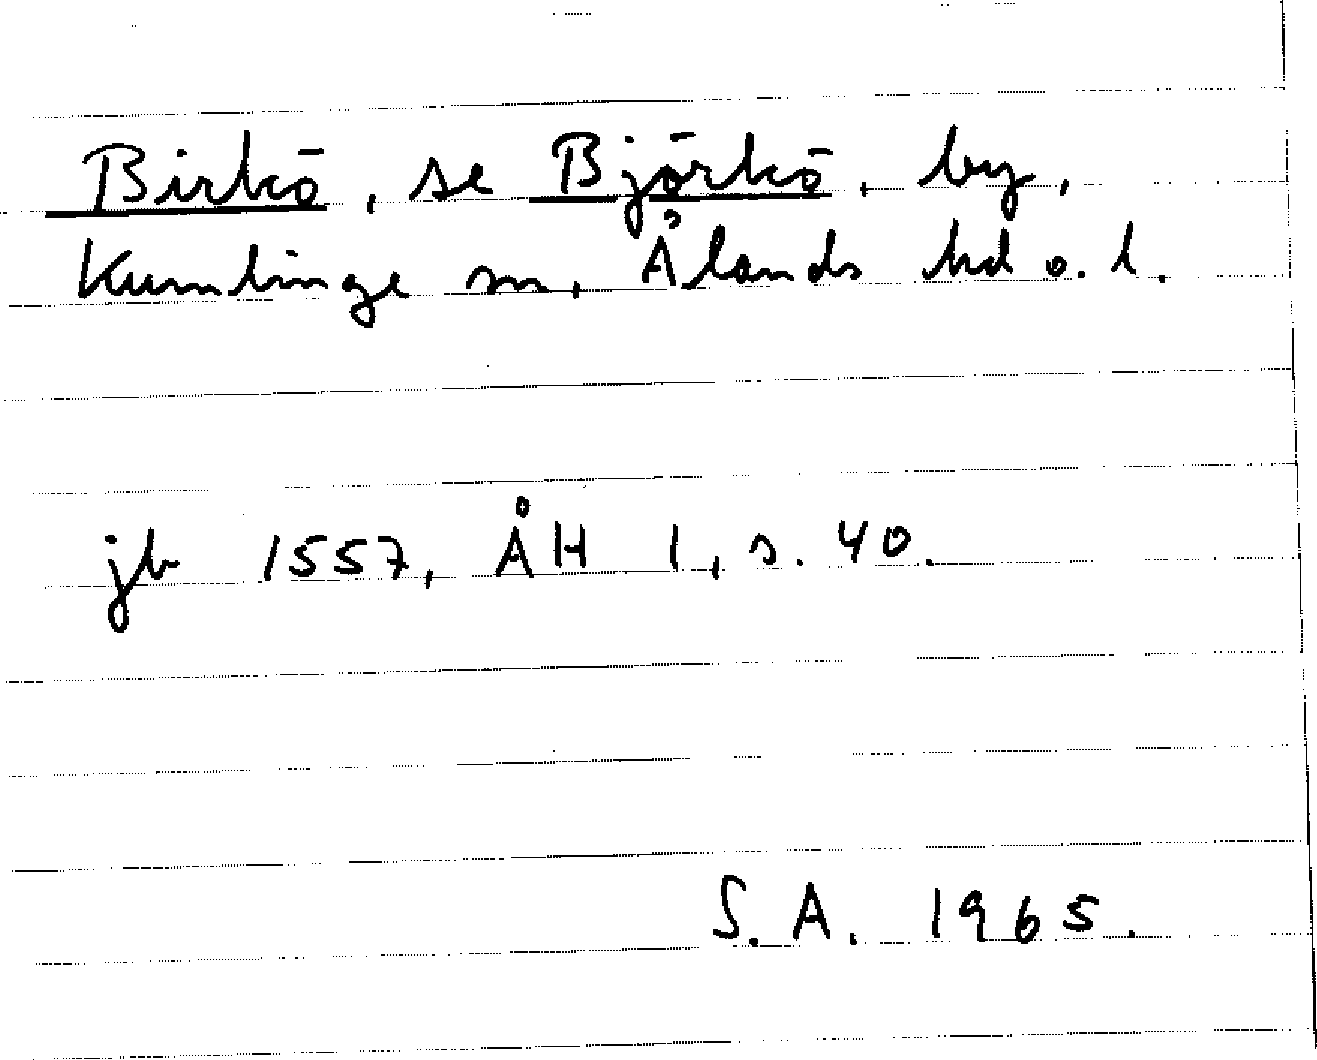 Birkö, se Björkö, by,
Kumlinge sn, Ålands hd o. l.
jb 1557, ÅH 1, s. 40.
S.A. 1965.